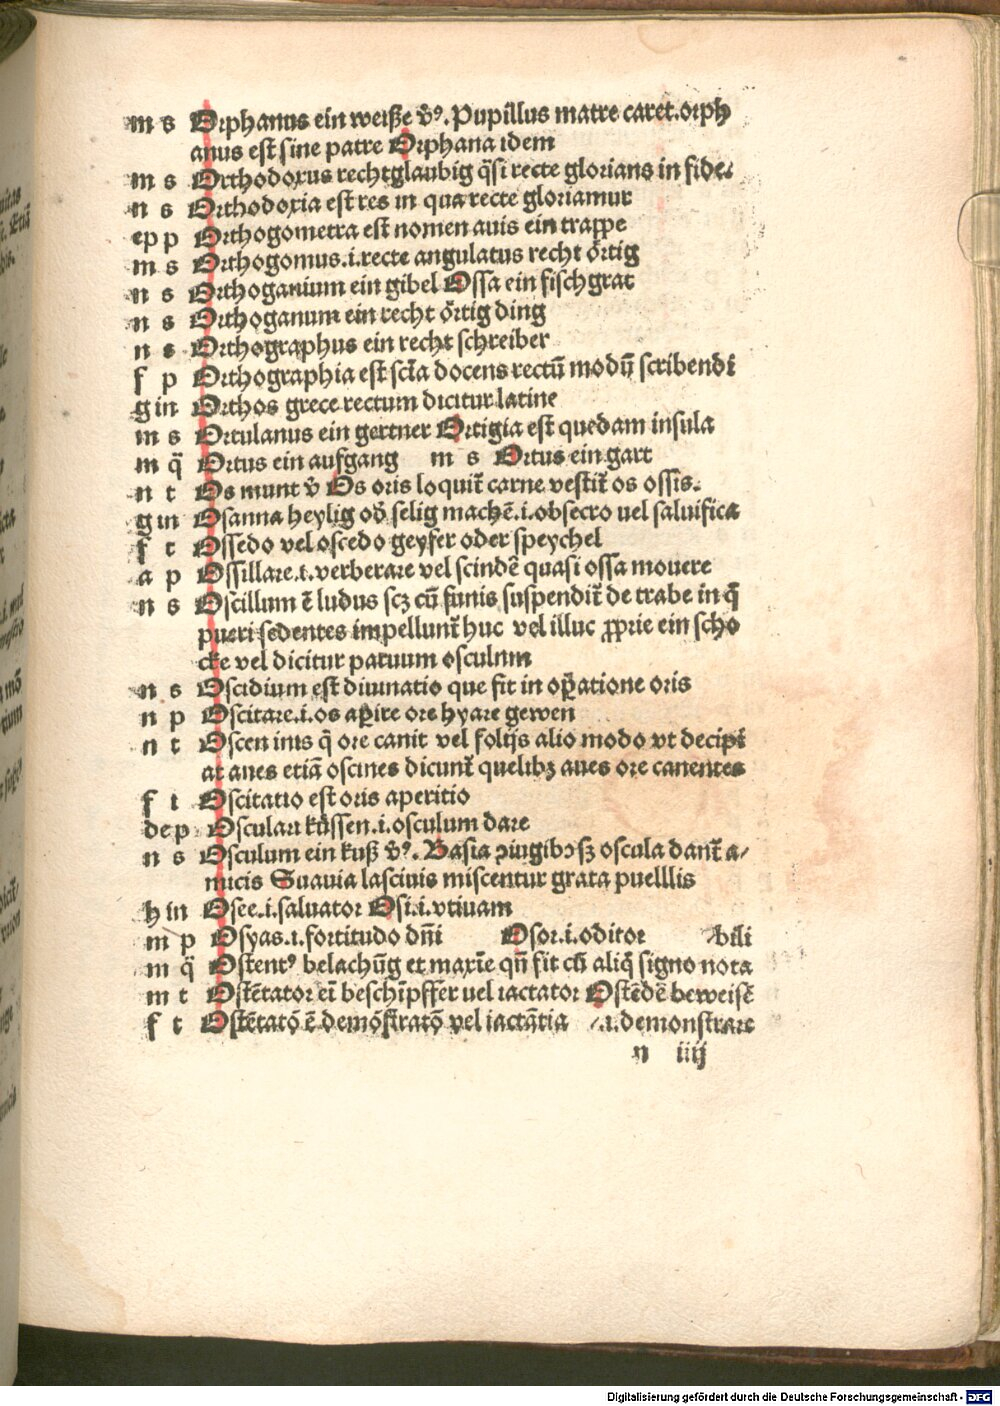 m s Orphanus ein weiße v̉ꝰ. Pupillus matre caret. orph
anus est sine patre Orphana idem
m s Orthodoxus rechtglaubig q̄si recte glorians in fide.
n s Orthodoxia est res in qua recte gloriamur
ep p Orthogometra est nomen auis ein trappe
m s Orthogomus .i. recte angulatus recht örtig
n s Orthoganium ein gibel Ossa ein fischgrat
n s Orthoganum ein recht örtig ding
n s Orthographus ein recht schreiber
f p Orthographia est scīa docens rectū modū scribendi
g in Orthos grece rectum dicitur latine
m s Ortulanus ein gertner Ortigia est quedam insula
m q̄ Ortus ein aufgang m s Ortus ein gart
n t Os munt v̉ Os oris loquit̄ carne vestit̄ os ossis.
g in Osanna heylig od̉ selig machē .i. obsecro uel saluifica
f t Ossedo vel oscedo geyfer oder speychel
a p Ossillare .i. verberare vel scindē quasi ossa mouere
n s Oscillum ē ludus scꝫ cū funis suspendit̄ de trabe in q̄
pueri sedentes impellunt̄ huc vel illuc ꝓprie ein scho
cke vel dicitur paruum osculum
n s Oscidium est diuinatio que fit in oꝑatione oris
n p Oscitare .i. os aꝑire ore hyare gewen
n t Oscen inis q̄ ore canit vel folijs alio modo vt decipi
at aues etiā oscines dicunt̄ quelibꝫ aues ore canentes
f t Oscitatio est oris aperitio
de p Osculari küssen .i. osculum dare
n s Osculum ein kuß v̉ꝰ. Basia ꝯiugibꝰ sꝫ oscula dant̄ a/
micis Suauia lasciuis miscentur grata puelllis
h in Osee .i. saluator Osi .i. vtinam
m p Osyas .i. fortitudo dn̄i Osor .i. oditor /bili
m q̄ Ostentꝰ belachūg et maxīe qn̄ fit cū aliq̄ signo nota
m t Ostētator eī beschīpffer uel iactator Ostēdē beweisē
f t Ostētatō ē demōstratō vel iactātia /.i. demonstrare
n iiij
Digitalisierung gefördert durch die Deutsche Forschungsgemeinschaft - DFG